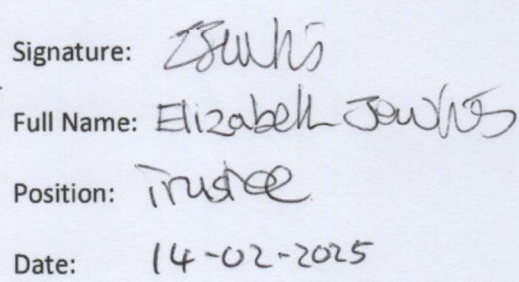 Signature: EJenkins
Full Name: Elizabeth Jenkins
Position: Trustee
Date: 14-02-2025